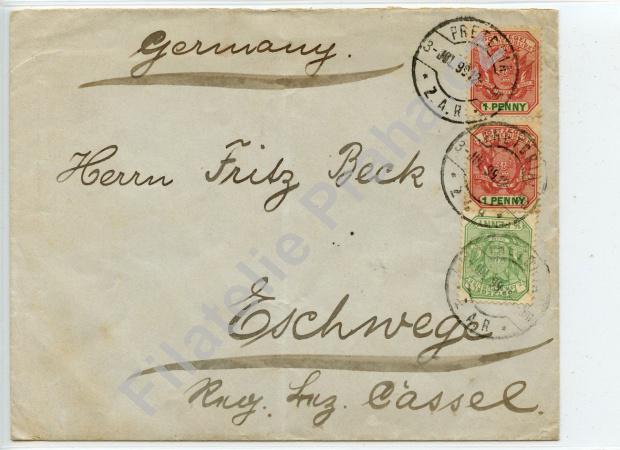 Germany.
PRETORIA
Z.A.R.
1 PENNY
Herrn Fritz Beck
1 PENNY
Eschwege
Reg. bez. Cassel.
Filatelie Praha